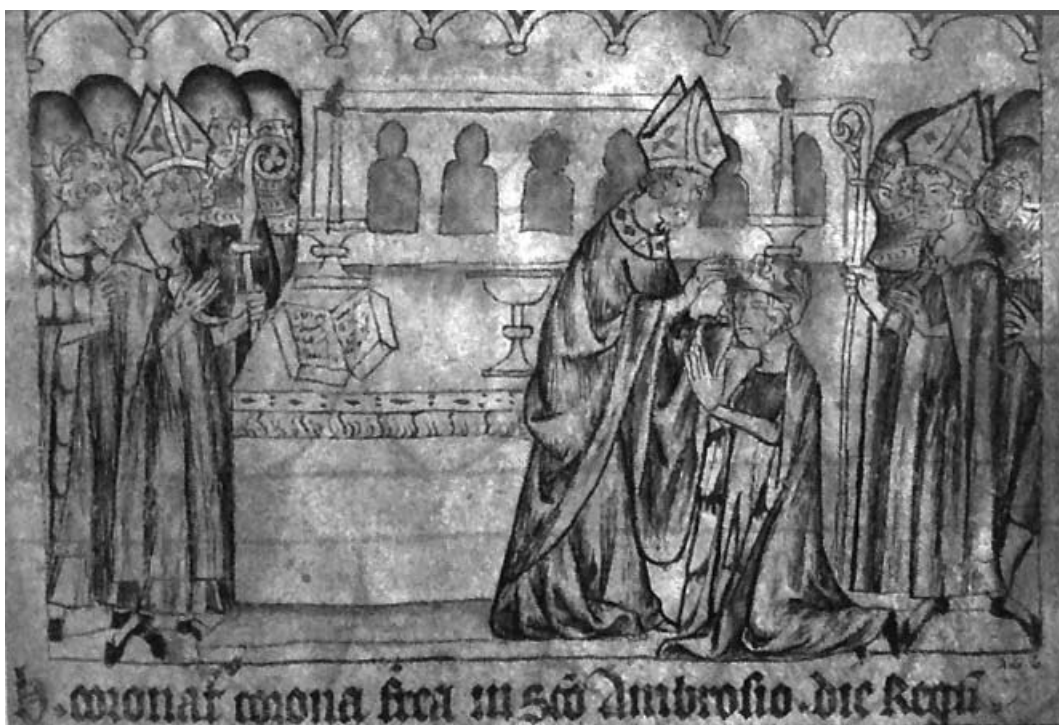 h. coronat̄ corona fr̄ea in sc̄o Ambrosio. die Regū.